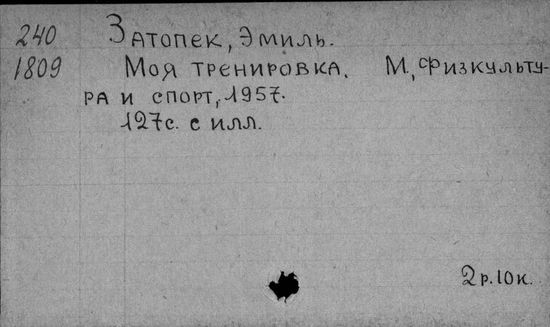 240 Затопек, Эмиль.
1809 Моя тренировка. М, Физкульту-
ра и спорт, 1957.
127с. с илл.
2р.10к.